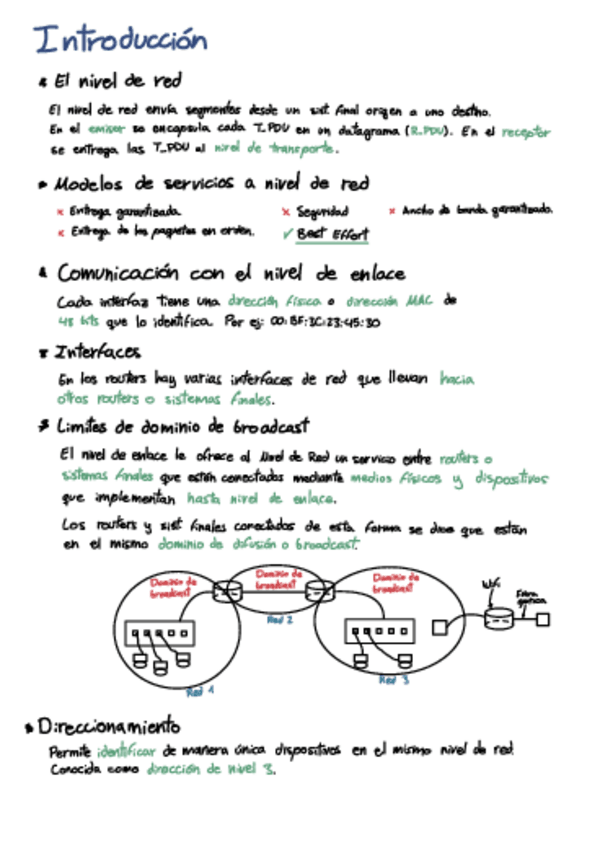 Introducción
El nivel de red
El nivel de red envía segmentos desde un sist. final origen a uno destino.
En el emisor se encapsula cada T_PDU en un datagrama (R_PDU). En el receptor
se entrega las T_PDU al nivel de transporte.
Modelos de servicios a nivel de red
× Entrega garantizada × Seguridad × Ancho de banda garantizado.
× Entrega de los paquetes en orden. ✓ Best Effort
Comunicación con el nivel de enlace
Cada interfaz tiene una dirección física o dirección MAC de
48 bits que lo identifica. Por ej: 00:BF:3C:23:45:30
Interfaces
En los routers hay varias interfaces de red que llevan hacia
otros routers o sistemas finales.
Limites de dominio de broadcast
El nivel de enlace le ofrece al Nivel de Red un servicio entre routers o
sistemas finales que estén conectados mediante medios físicos y dispositivos
que implementan hasta nivel de enlace.
Los routers y sist finales conectados de esta forma se dice que están
en el mismo dominio de difusión o broadcast.
Dominio de
broadcast
Dominio de
broadcast
Dominio de
broadcast
Red 2
Red 1
Red 3
Direccionamiento
Permite identificar de manera única dispositivos en el mismo nivel de red.
Conocida como dirección de nivel 3.